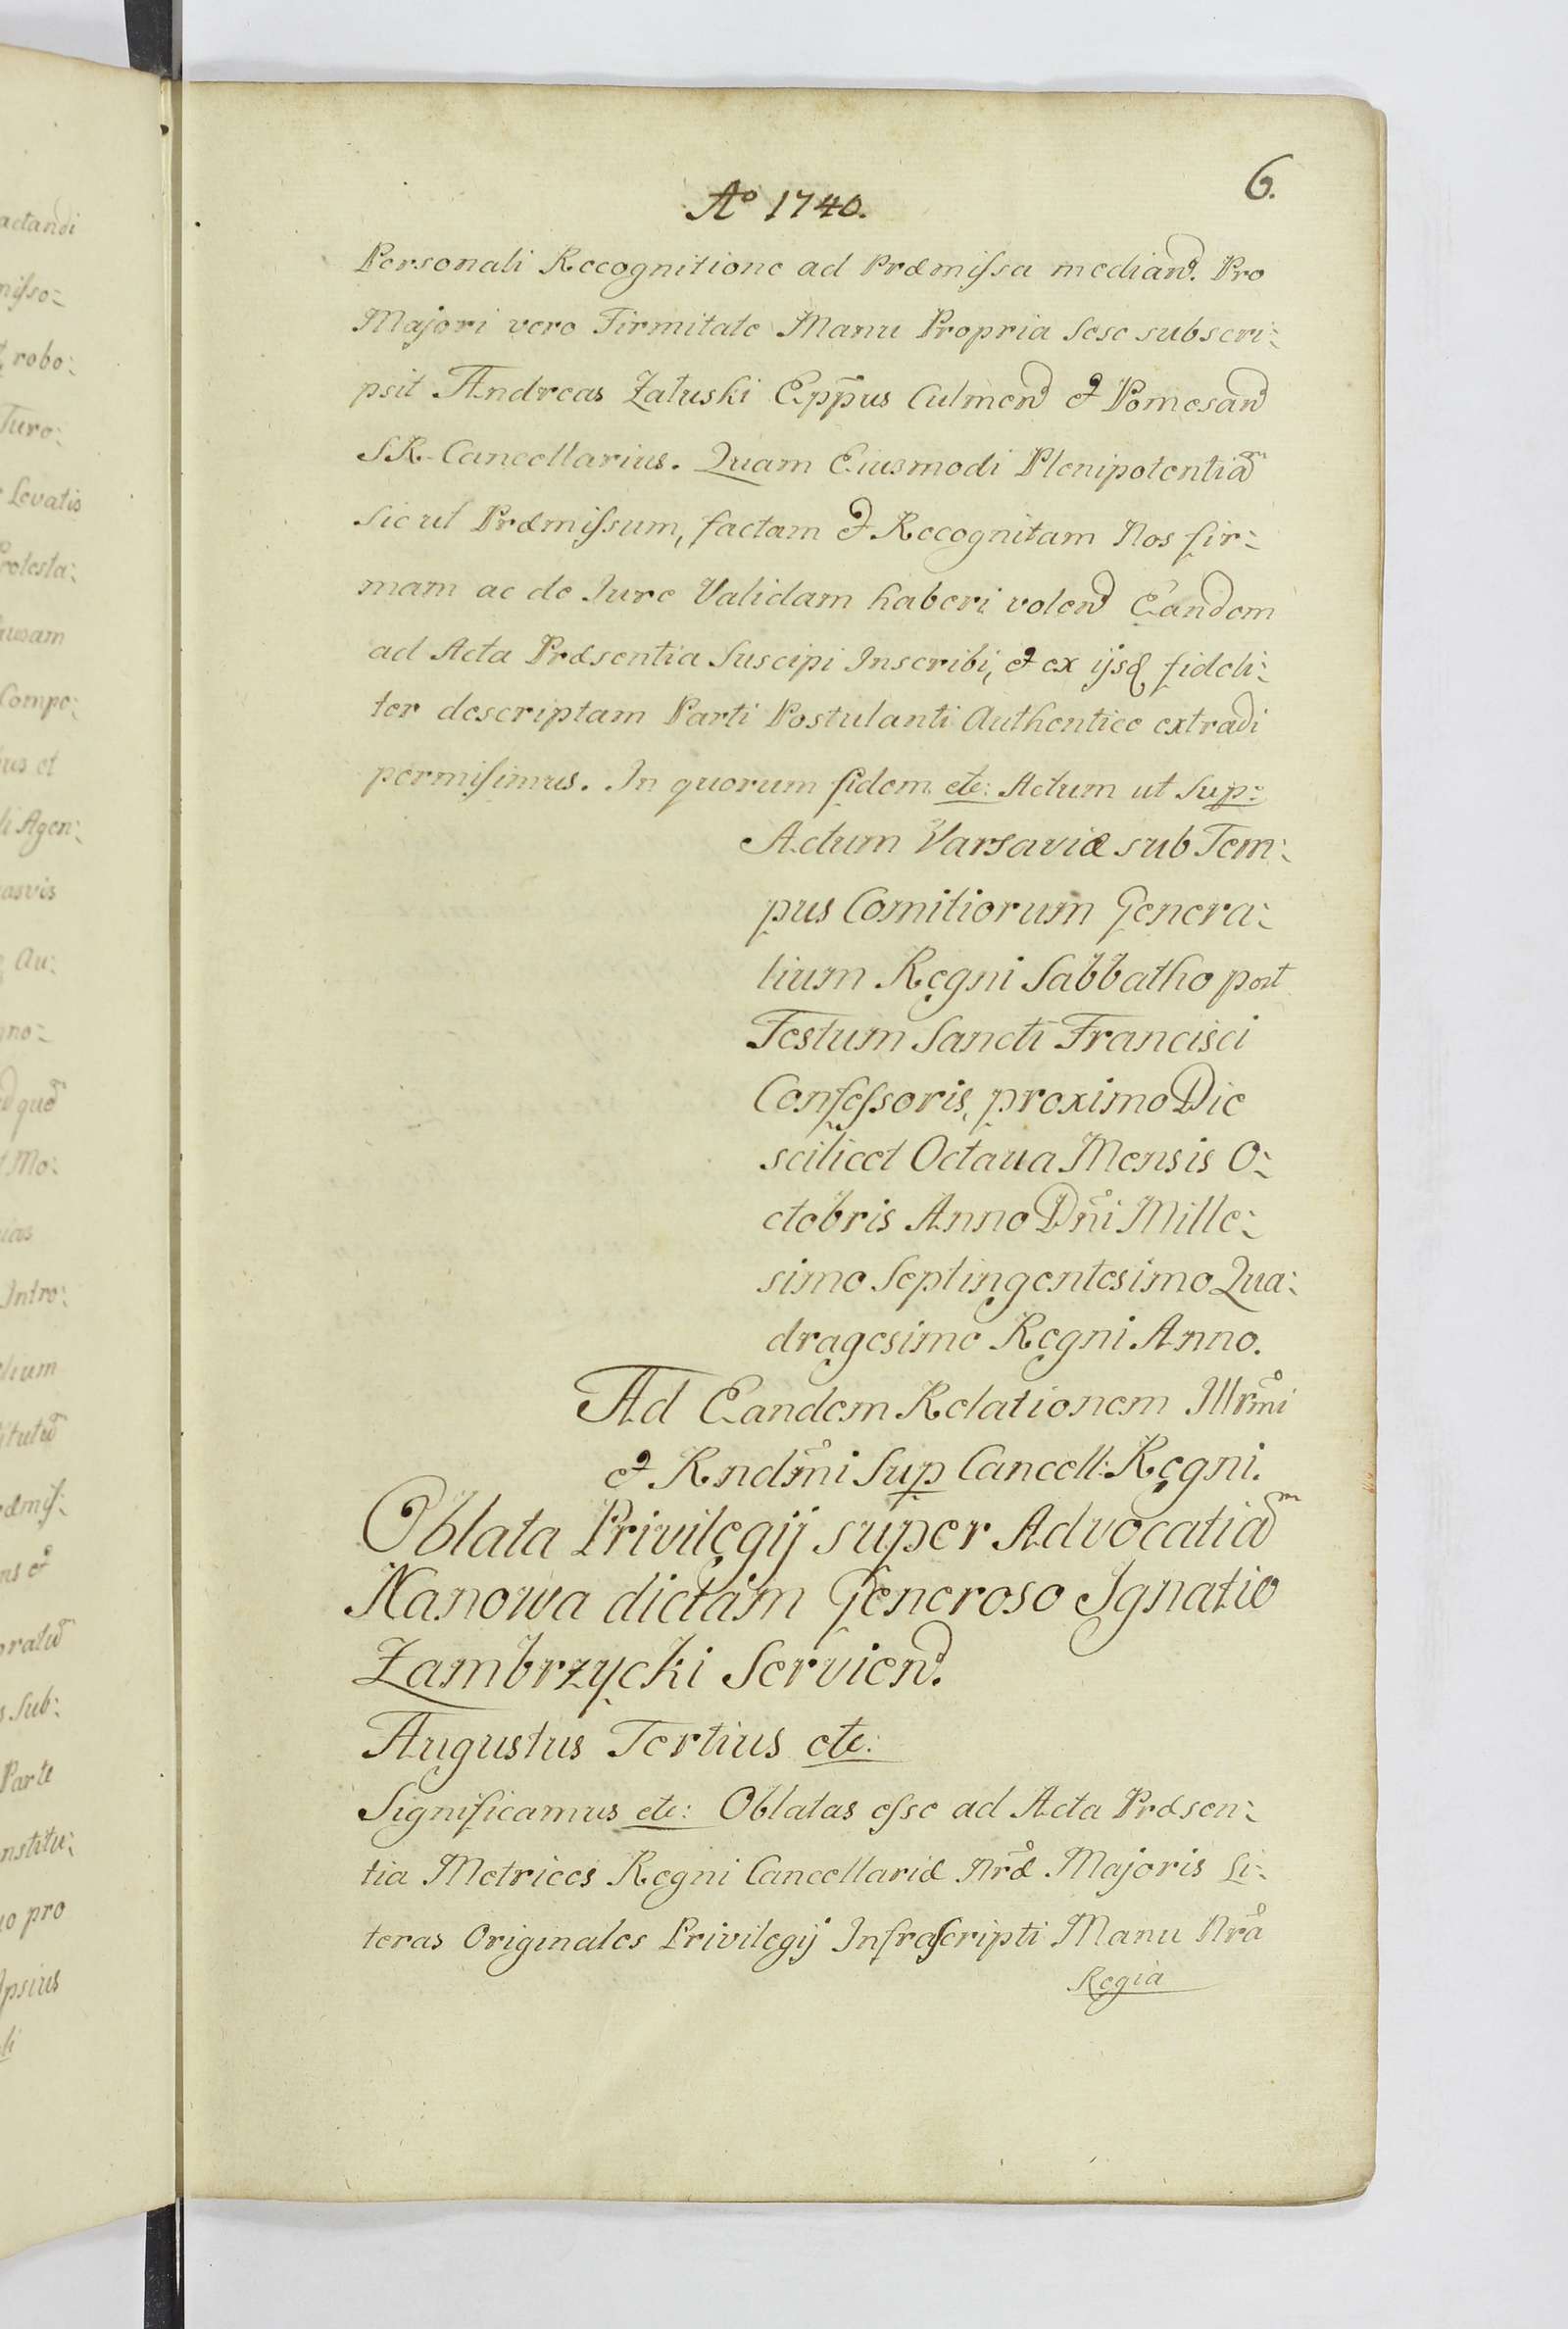 6.
Aº 1740.
Personali Recognitione ad Præmissa median̄d. Pro
Majori vero Firmitate Manu Propria sese subscri:
psit Andreas Załuski Epp̄us Culmen̄d & Pomesan̄d
S.R. Cancellarius. Quam Eiusmodi Plenipotentiam̄
sic ut Præmissum, factam & Recognitam Nos fir:
mam ac de Iure Validam haberi volen̄d Eandem
ad Acta Præsentia Suscipi Inscribi, & ex ijsq fideli:
ter descriptam Parti Postulanti Authentice extradi
permisimus. In quorum fidem etc: Actum ut Sup:
Actum Varsaviæ sub Tem:
pus Comitiorum Genera:
lium Regni Sabbatho post
Festum Sancti Francisci
Confessoris, proximo Die
scilicet Octaua Mensis O:
ctobris Anno Dn̄i Mille:
simo Septingentesimo Qua:
dragesimo Regni Anno.
Ad Eandem Relationem Illrm̄i
& Rndm̄i Sup Cancell: Regni.
Oblata Privilegij super Advocatiam̄
Nanowa dictam Generoso Ignatio
Zambrzycki Servien̄d.
Augustus Tertius etc:
Significamus etc: Oblatas esse ad Acta Præsen:
tia Metrices Regni Cancellariæ Nr̄æ Majoris Li:
teras Originales Privilegij Infrascripti Manu Nr̄a
Regia
actandi
misso:
robo:
Iure:
Levatis
Protesta:
ausam
Compe:
ius et
li Agen:
asvis
Au:
gno:
quō
Mo:
ias
Intro:
lium
itutū
æmis:
ns &
oratū
s Sub:
Parte
nstitu:
uo pro
Ipsius
li